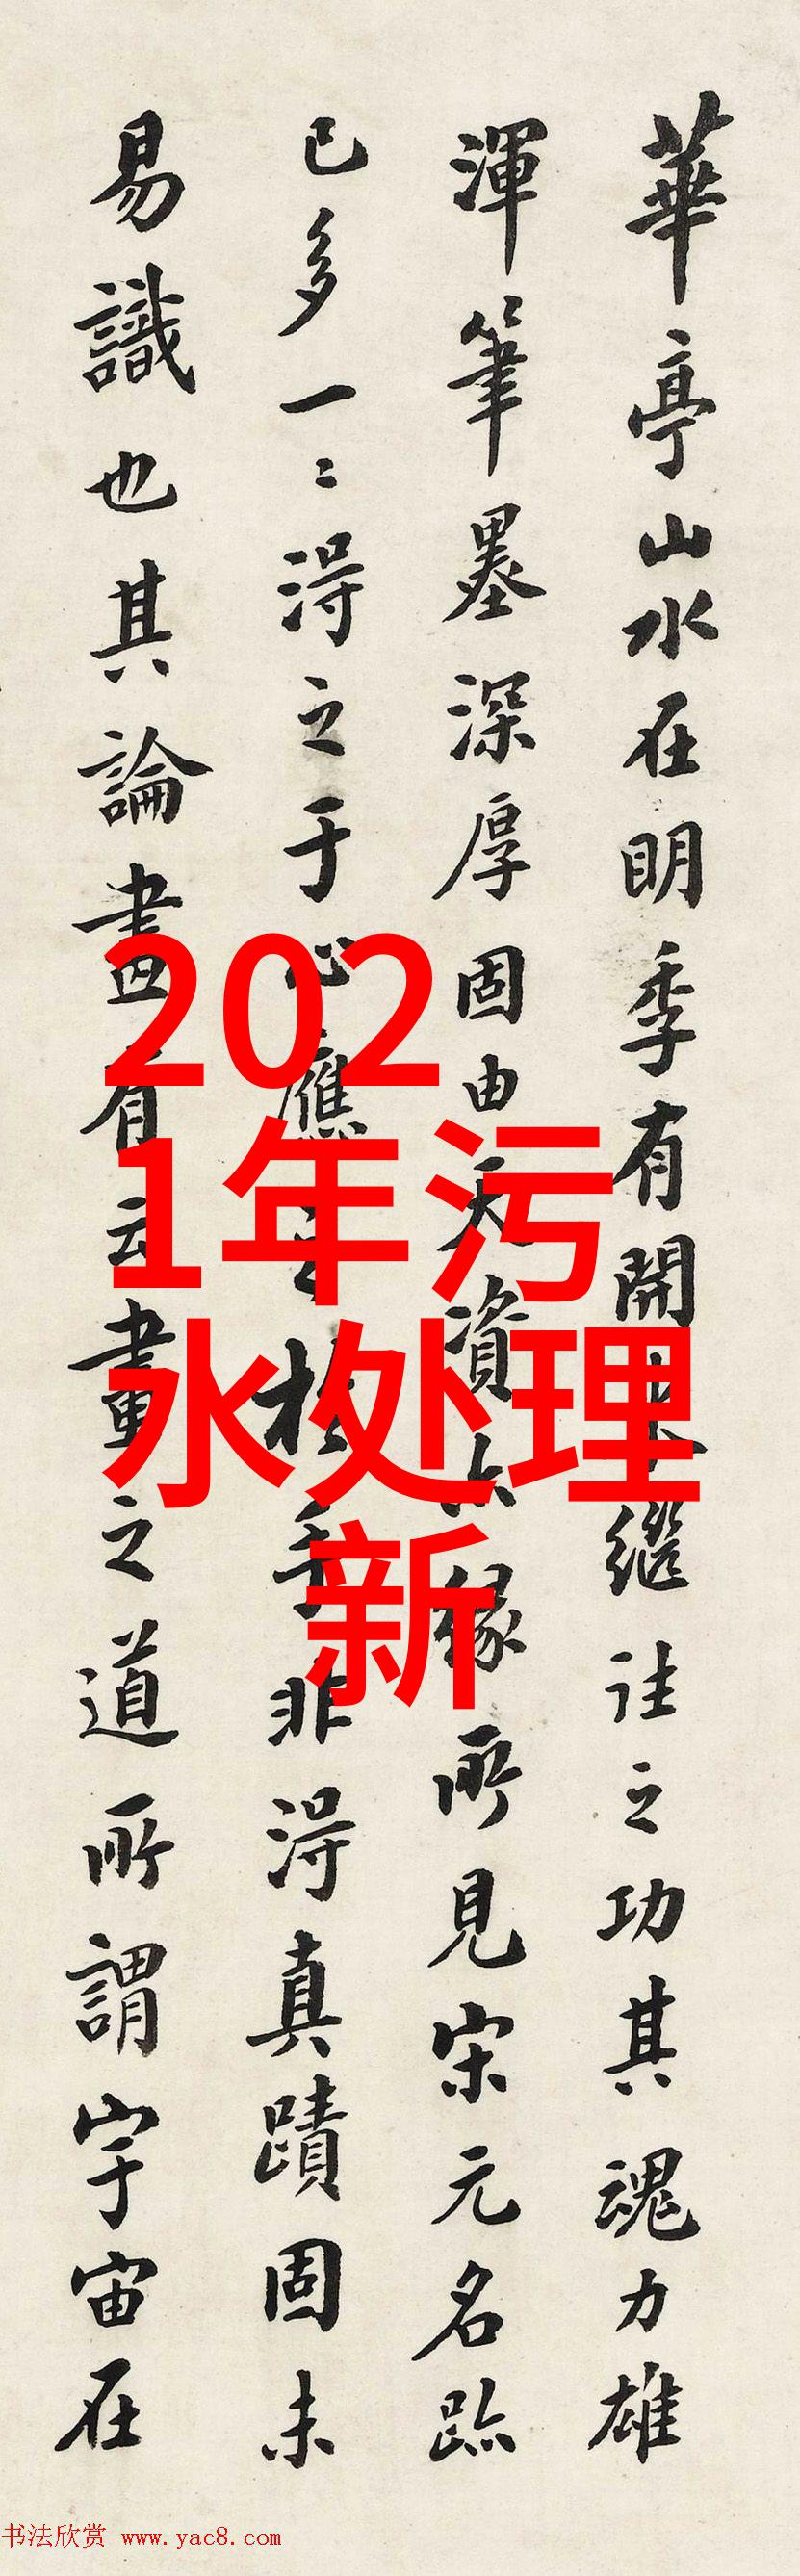 華亭山水在明季有開来繼往之功其魂力雄
渾筆墨深厚固由天資亦緣所見宋元名跡
已多一〻得之于心應之於手非得真蹟固未
易識也其論畫有云畫之道所謂宇宙在
202
1年污
水处理
新
书法欣赏 www.yac8.com